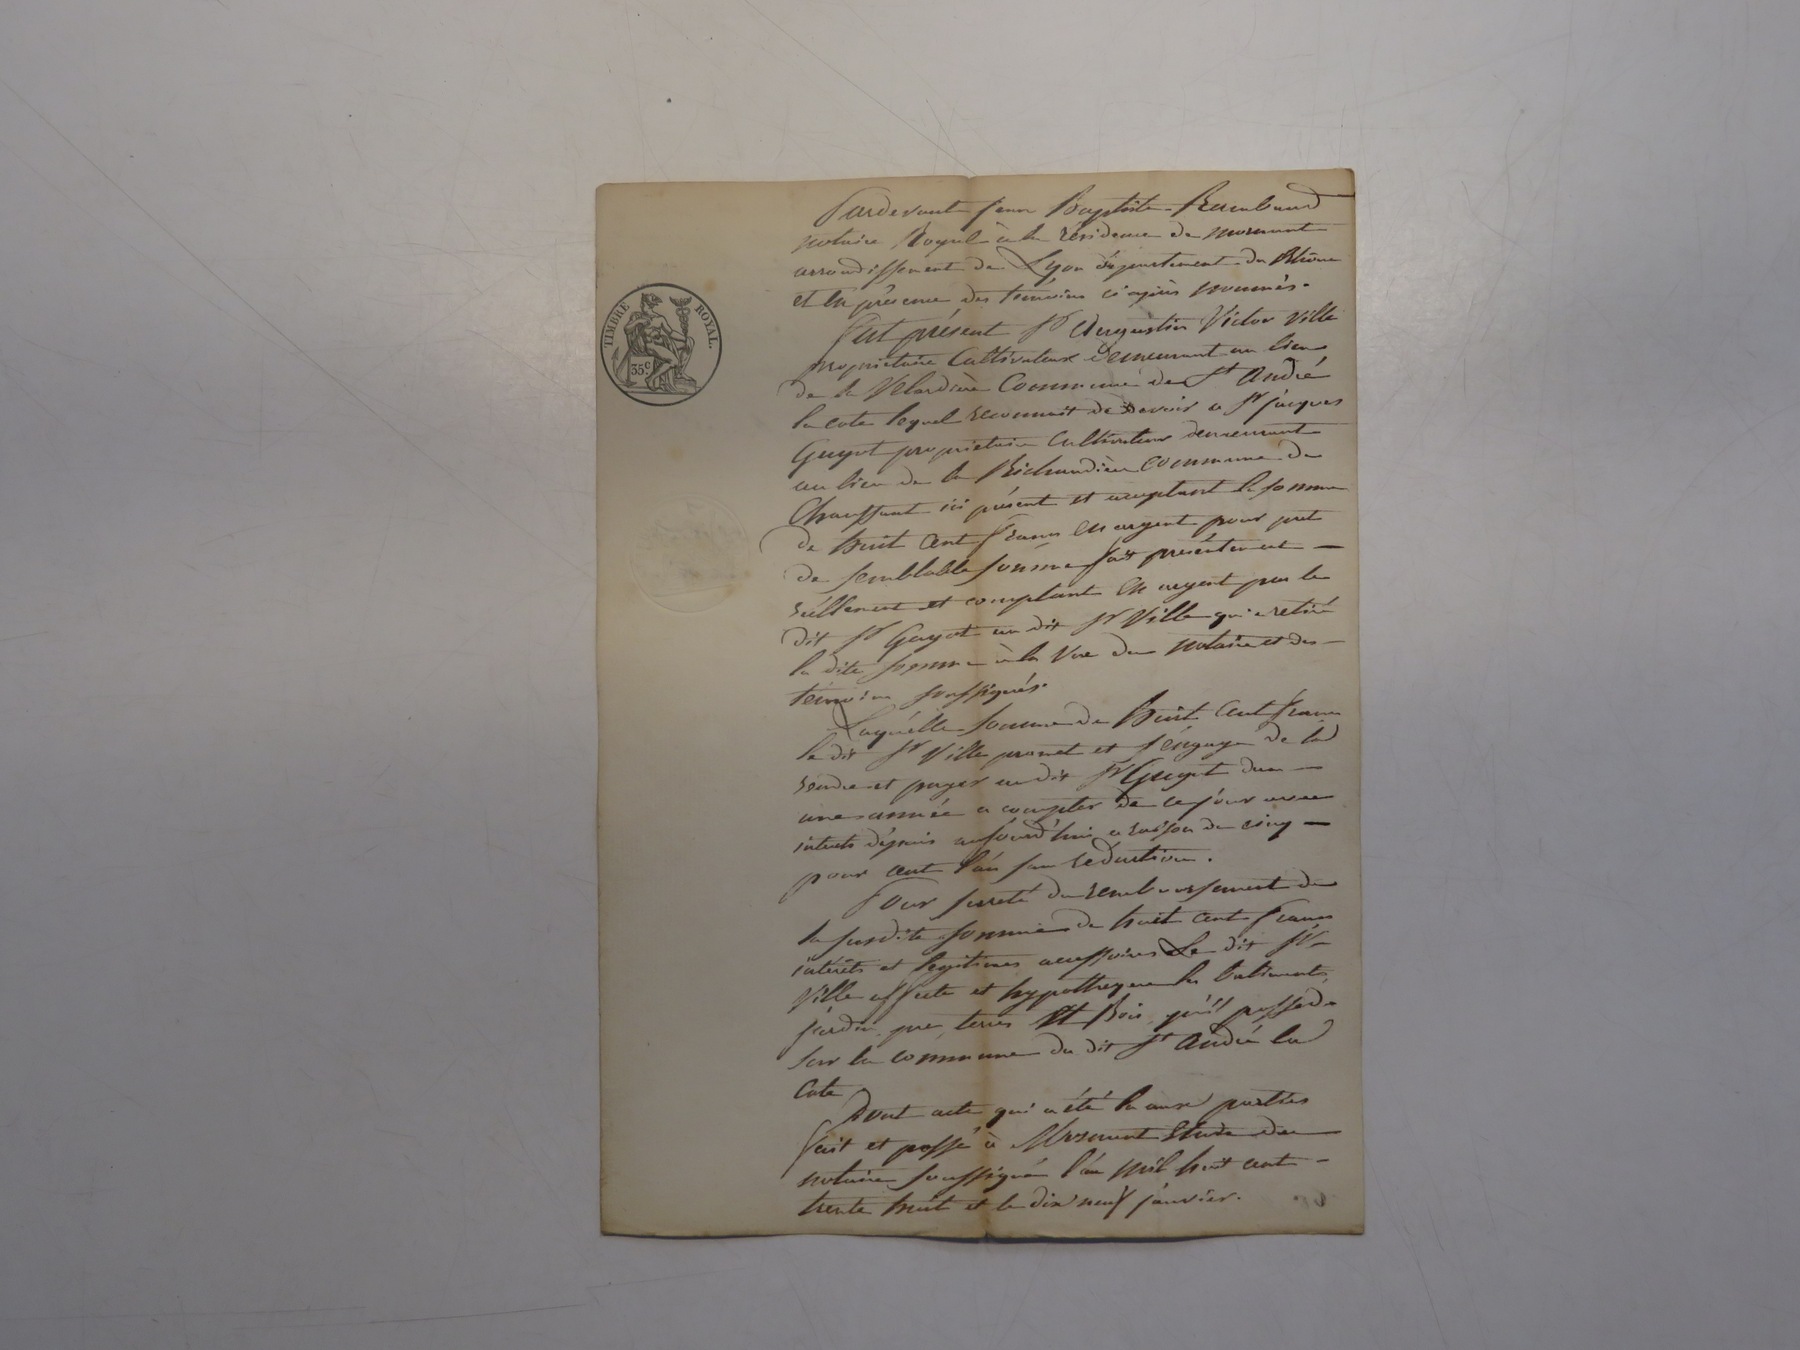 TIMBRE ROYAL.
35c.
Pardevant Jean Baptiste Rambaud
notaire Royal à la résidence de mornant
arrondissement de Lyon département du Rhône
et en présence des témoins ci après nommés.
Fut présent Sr Augustin Victor Ville
propriétaire Cultivateur demeurant au lieu
de la Commune de St André
la cote lequel reconnait de devoir a Sr jacques
Guyot propriétaire Cultivateur demeurant
au lieu de la Richaudière Commune de
Chaussant ici présent et acceptant la somme
de huit cent francs en argent pour pret
de semblable somme fait présentement —
réellement et comptant en argent par le
dit Sr Guyot au dit Sr Ville qui a retiré
la dite somme à la Vue du notaire et des —
témoins soussignés.
Laquélle somme de Huit Cent francs
le dit Sr Ville promet et s'éngage de la
rendre et payer au dit Sr Guyot dans —
une année a compter de ce jour avec
intérets dépuis aujourd'hui a raison de cinq —
pour cent l'an sans réduction.
Pour sureté du remboursement de
la susdite somme de huit cent francs
intérêts et legitimes accessoires Le dit Sr
Ville affecte et hypotheque les batiments,
jardin, pré, terres Et Bois, qu'il possede
sur la commune du dit St André la
Cote
Dont acte qui a été lu aux parties
fait et passé à Mornant Etude du
notaire soussigné l'an mil huit cent —
trente huit et le dix neuf janvier.